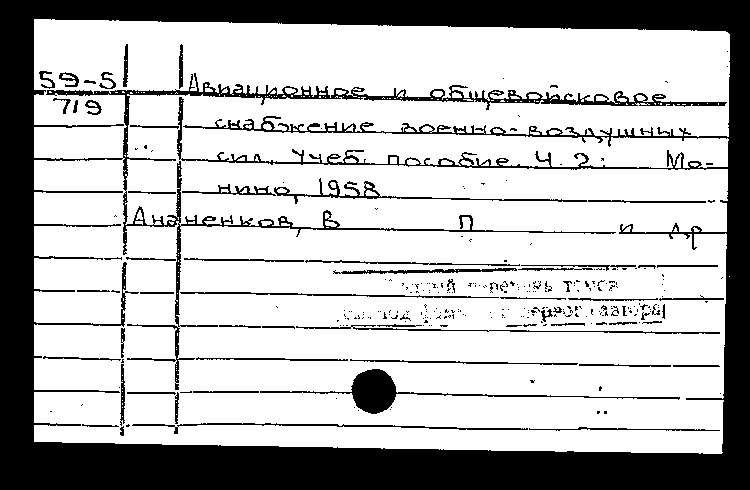 59-5 Авиационное и общевойсковое
719
снабжение военно-воздушных
сил. Учеб. пособие. Ч. 2. Мо-
нино, 1958
Ананенков, В П и др
перечень томов
под первого автора